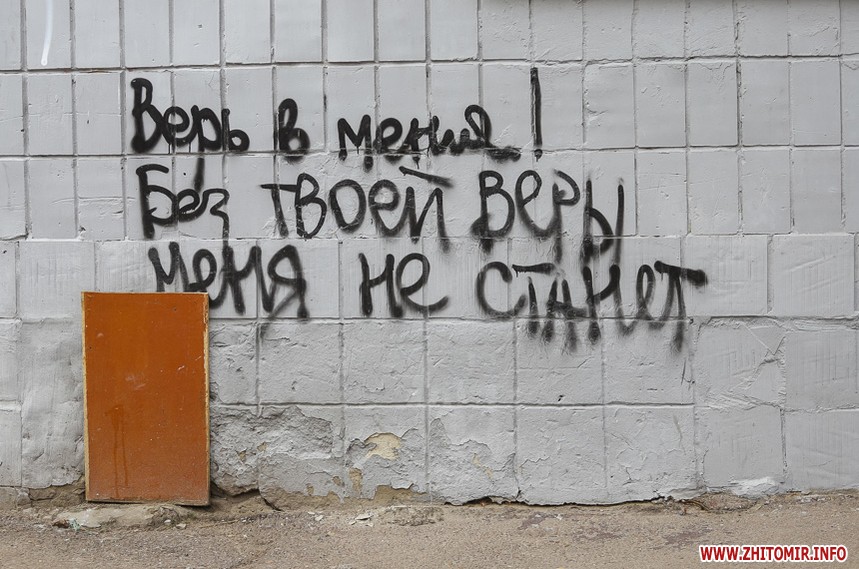 Верь в меня!
Без твоей веры
меня не станет
WWW.ZHITOMIR.INFO